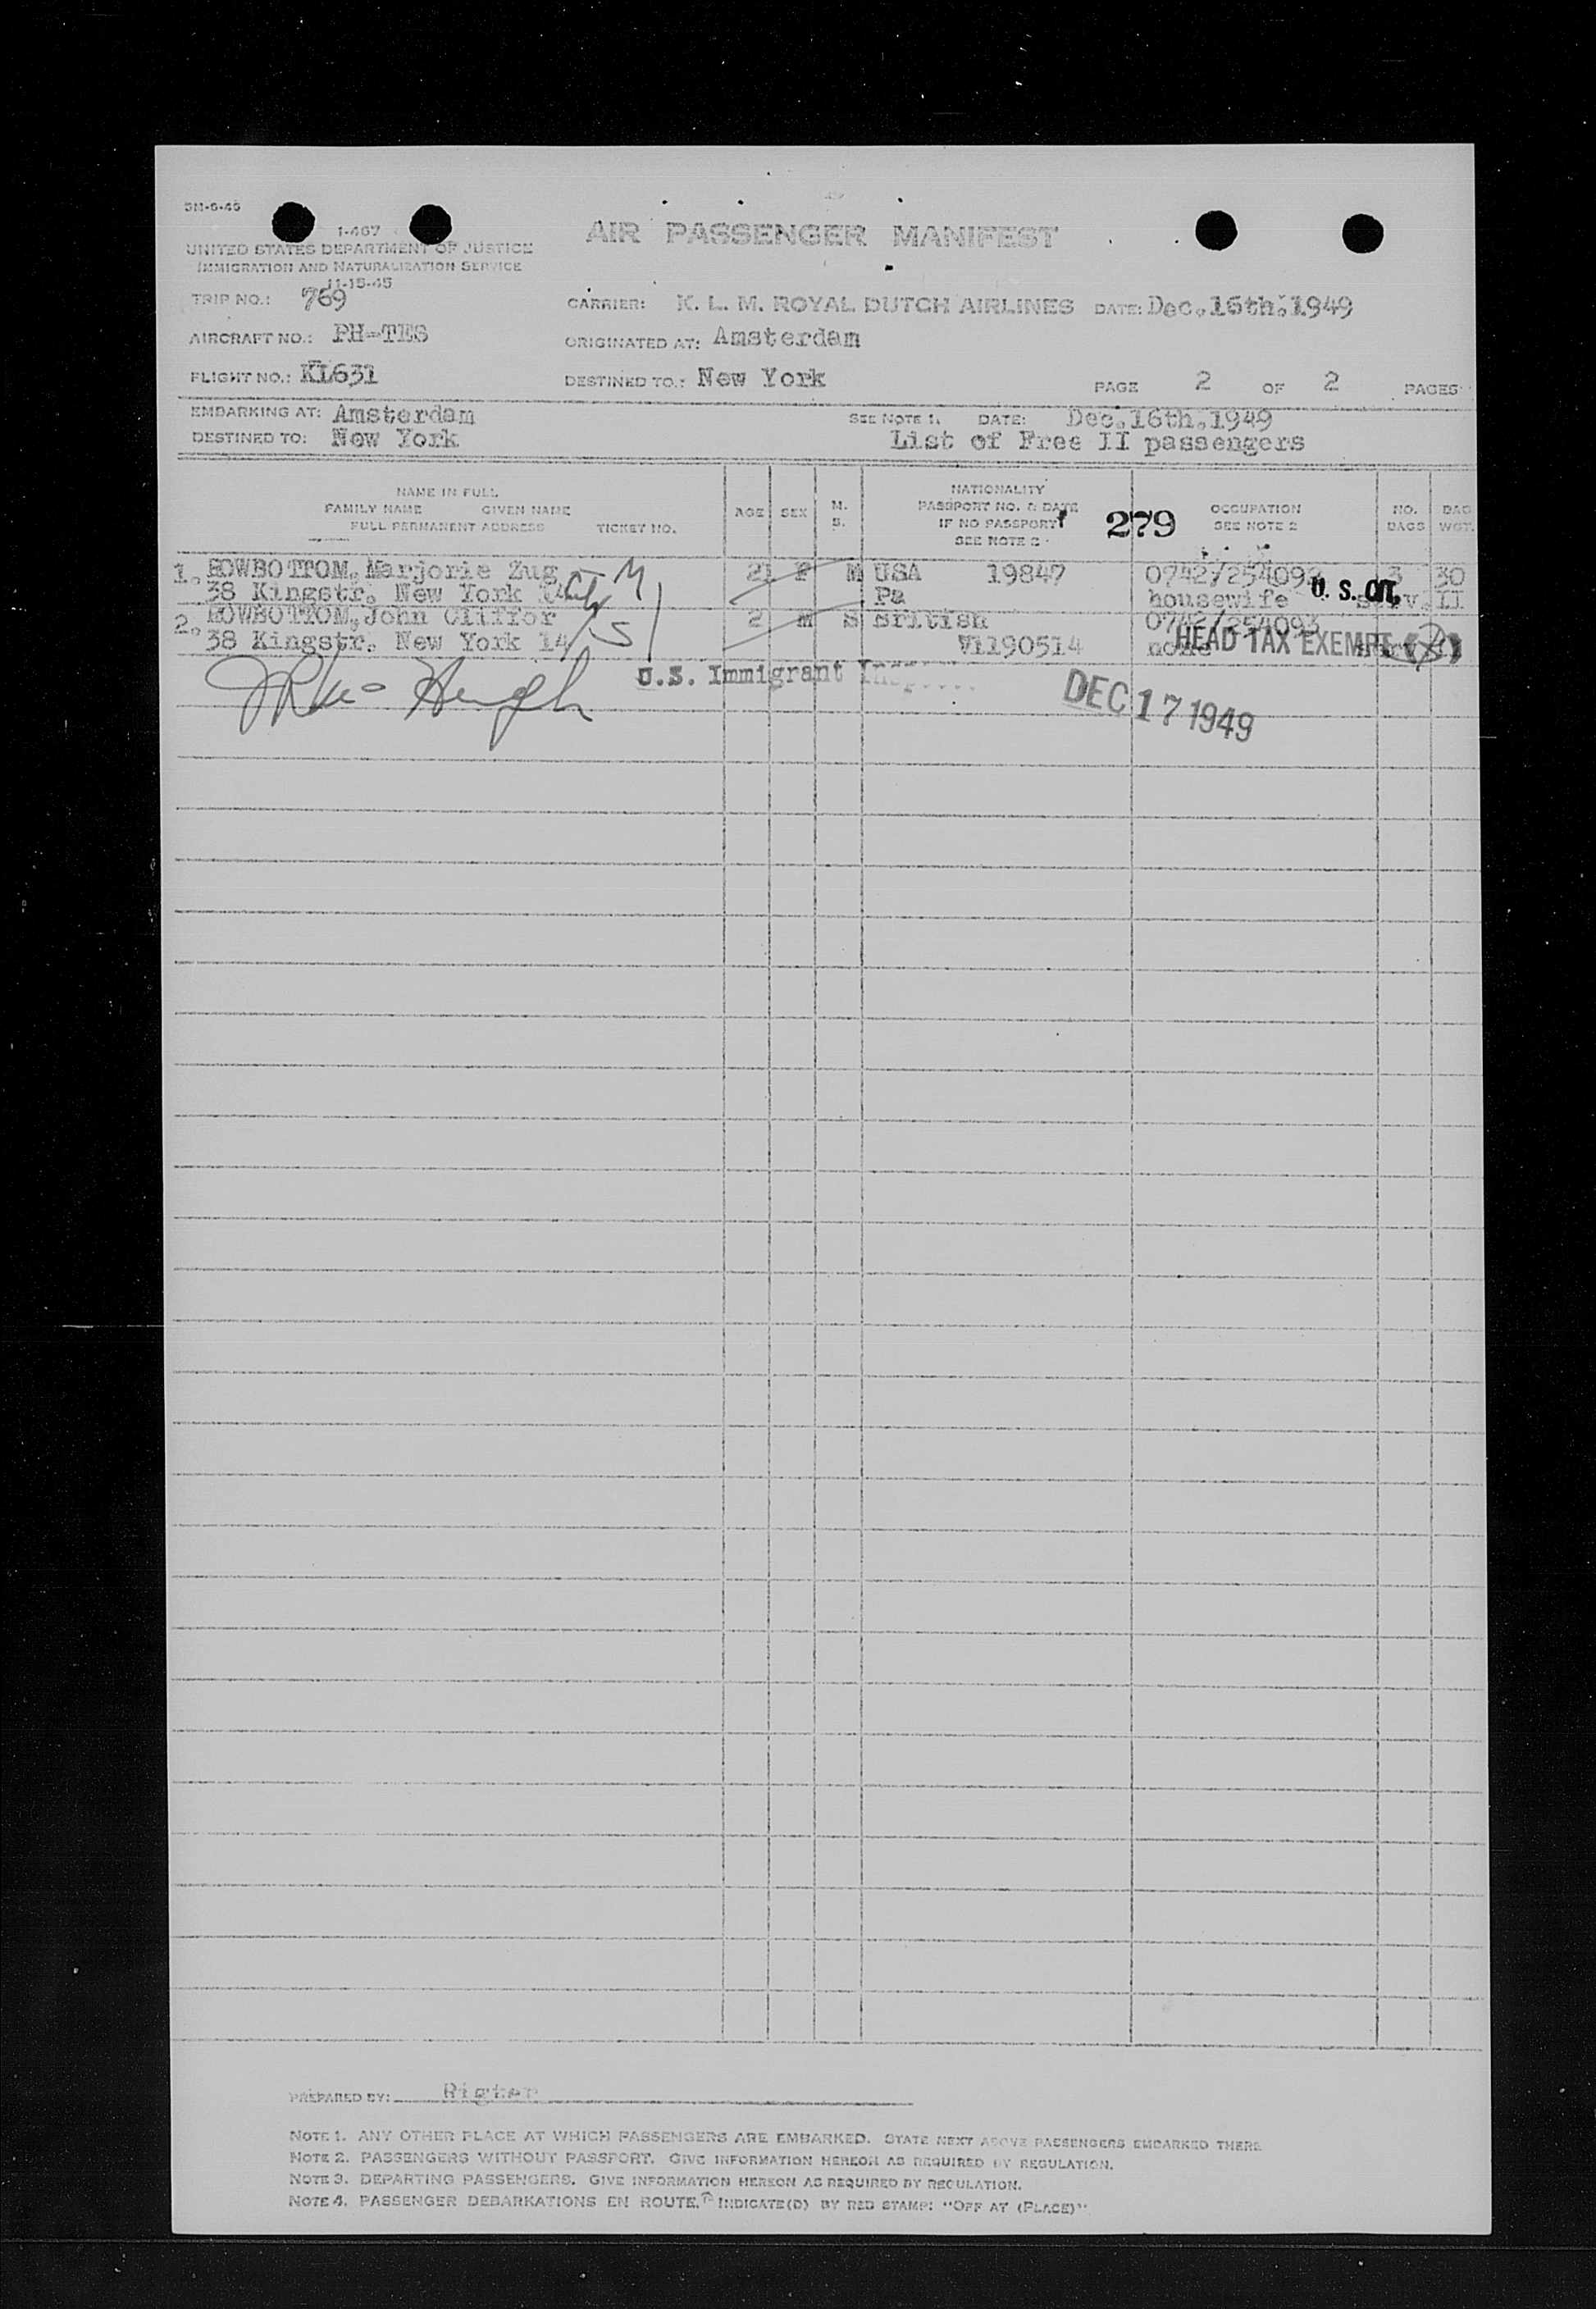 3M-6-45
I-467
UNITED STATES DEPARTMENT OF JUSTICE
IMMIGRATION AND NATURALIZATION SERVICE
11-15-45
AIR PASSENGER MANIFEST
TRIP NO.: 769 CARRIER: K. L. M. ROYAL DUTCH AIRLINES DATE: Dec.16th.1949
AIRCRAFT NO.: PH-TES ORIGINATED AT: Amsterdam
FLIGHT NO.: KL631 DESTINED TO.: New York PAGE 2 OF 2 PAGES
EMBARKING AT: Amsterdam SEE NOTE 1. DATE: Dec.16th.1949
DESTINED TO: New York List of Free II passengers
NAME IN FULL
FAMILY NAME GIVEN NAME
FULL PERMANENT ADDRESS TICKET NO.
AGE SEX M. S.
NATIONALITY
PASSPORT NO. & DATE
IF NO PASSPORT
SEE NOTE 2
279
OCCUPATION
SEE NOTE 2
NO. BAGS
BAG WGT.
1. ROWBOTTOM, Marjorie Zug M 21 F M USA 19847 0742/254092 3 30
38 Kingstr. New York City Pa housewife U. S. CIT. serv. II
2. ROWBOTTOM, John Cliffor 2 M S British 0742/254093
38 Kingstr. New York 14 S V1190514 none HEAD TAX EXEMPT
U.S. Immigrant
DEC 17 1949
PREPARED BY: Rigter
NOTE 1. ANY OTHER PLACE AT WHICH PASSENGERS ARE EMBARKED. STATE NEXT ABOVE PASSENGERS EMBARKED THERE
NOTE 2. PASSENGERS WITHOUT PASSPORT. GIVE INFORMATION HEREON AS REQUIRED BY REGULATION.
NOTE 3. DEPARTING PASSENGERS. GIVE INFORMATION HEREON AS REQUIRED BY REGULATION.
NOTE 4. PASSENGER DEBARKATIONS EN ROUTE. INDICATE(D) BY RED STAMP: "OFF AT (PLACE)"